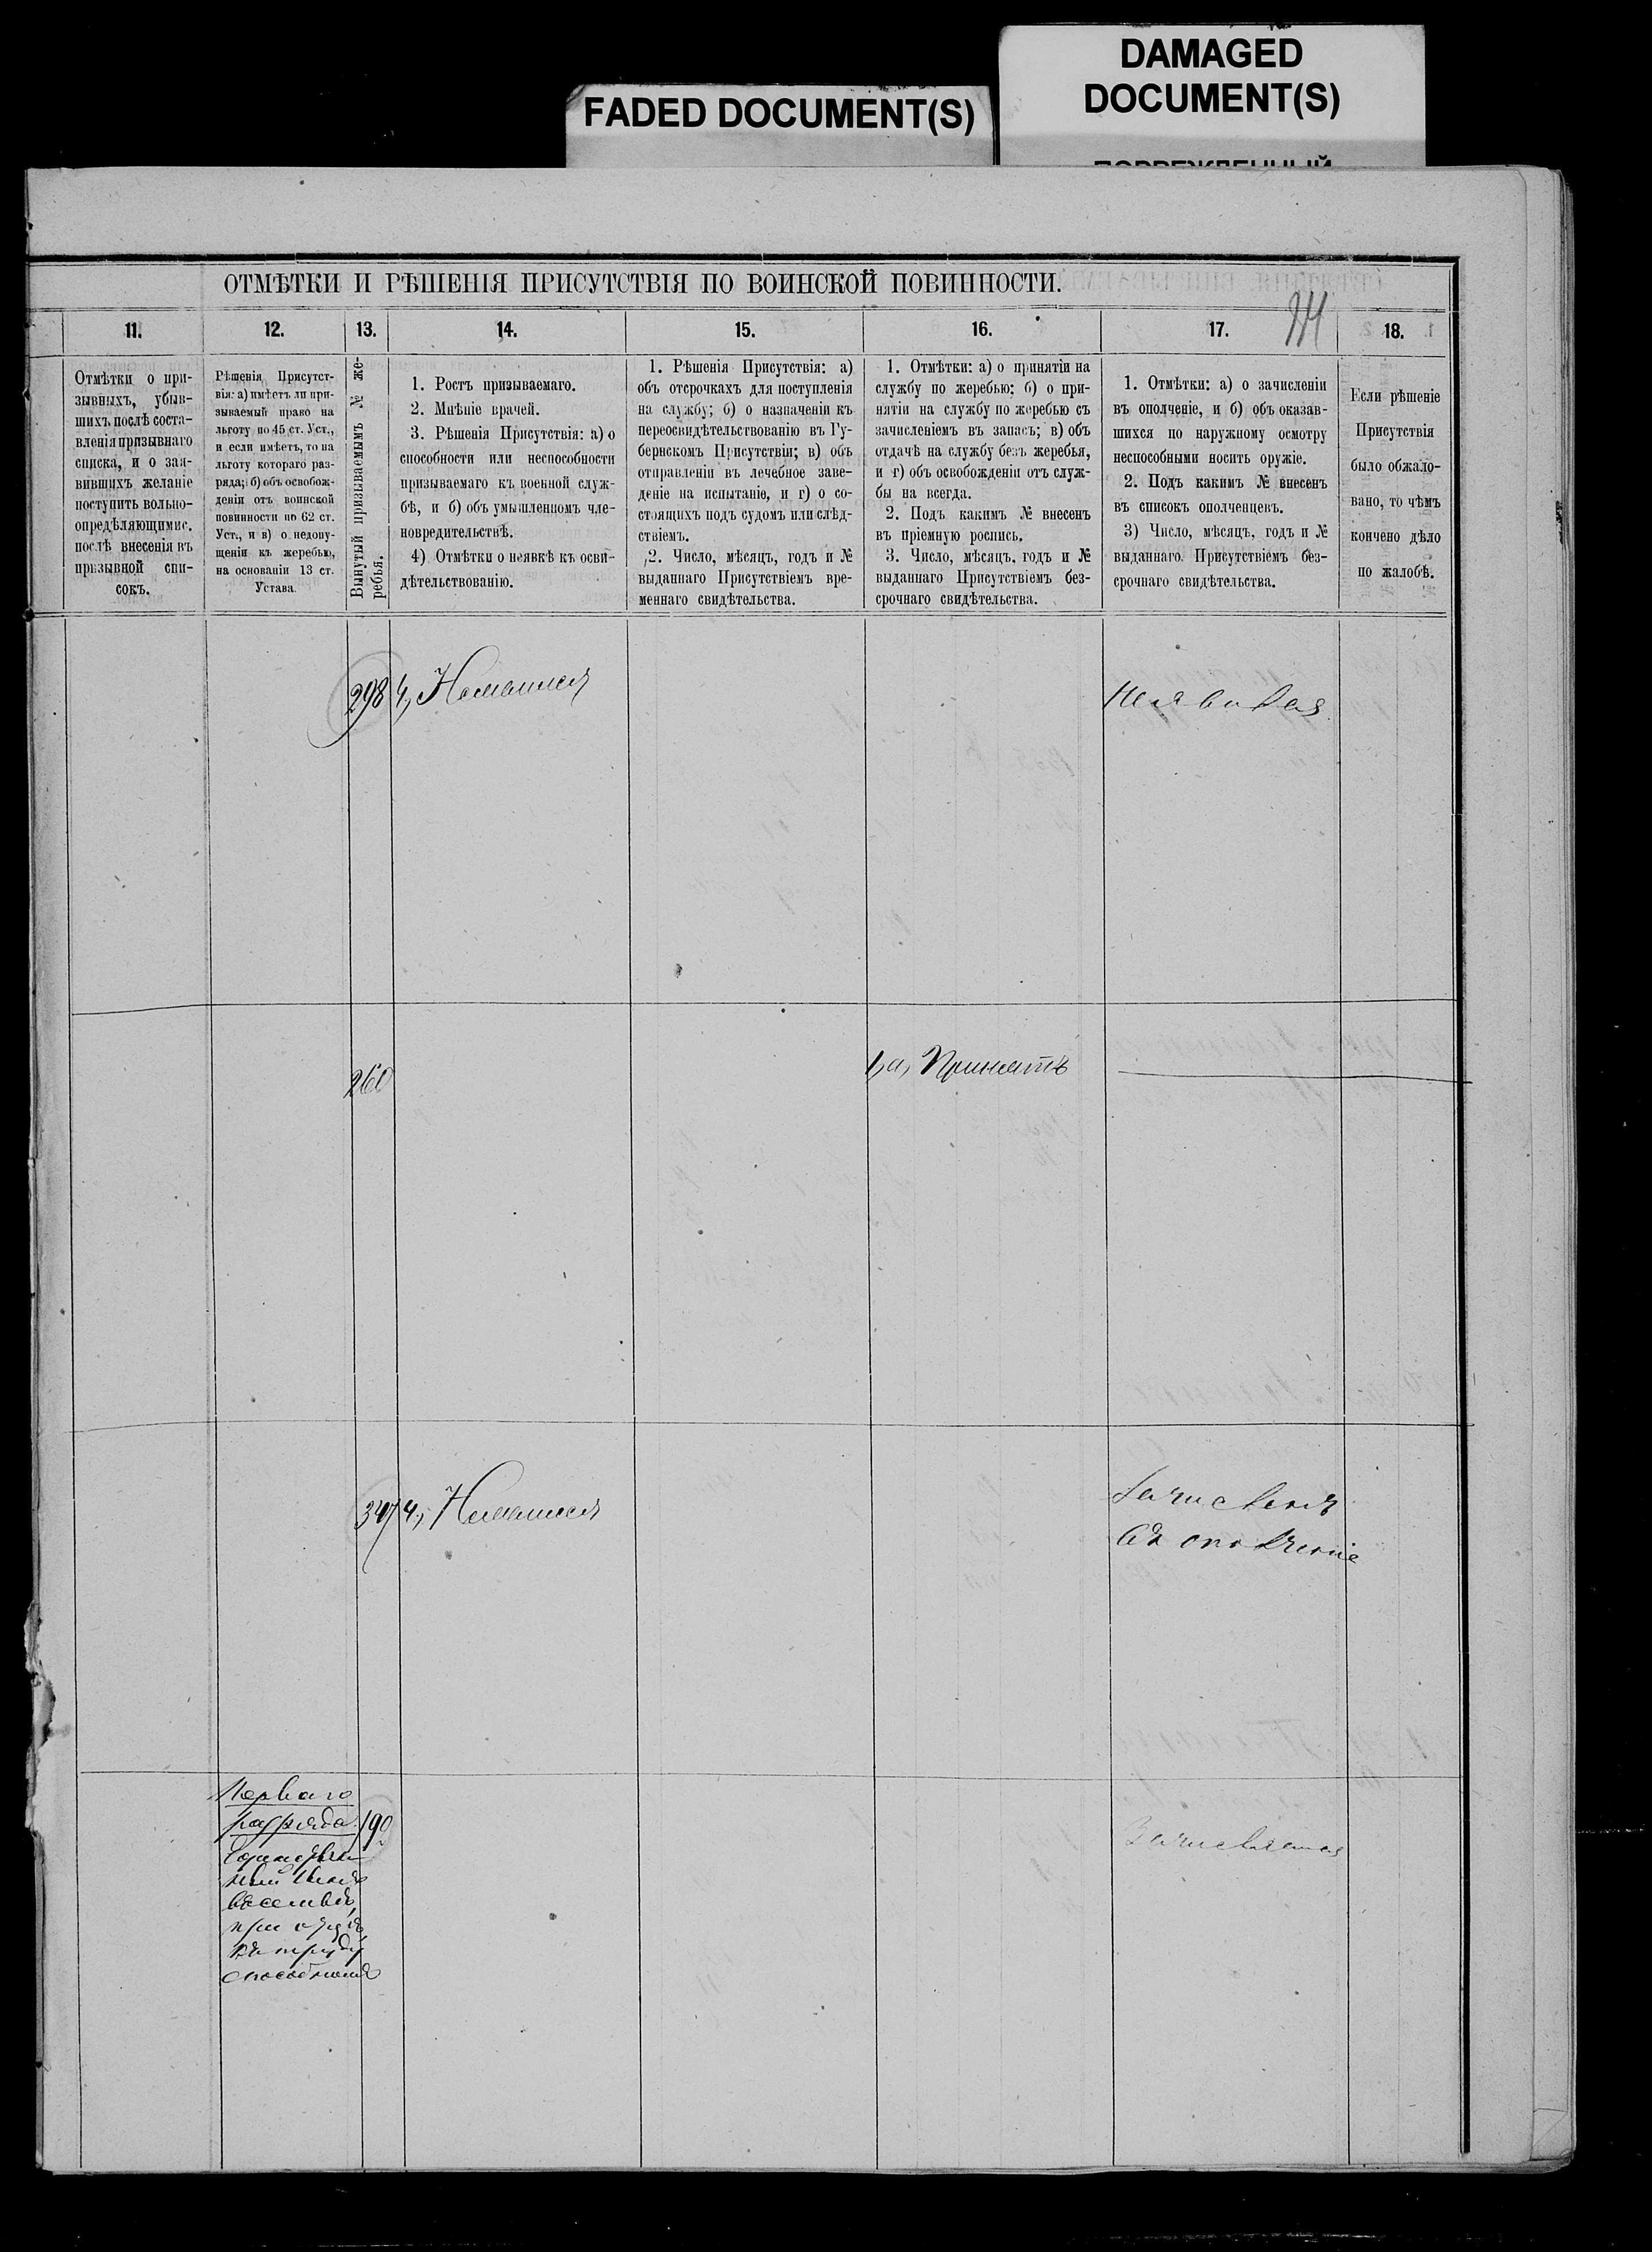 DAMAGED
DOCUMENT(S)
FADED DOCUMENT(S)
ПОВРЕЖДЕННЫЙ
ОТМѢТКИ И РѢШЕНІЯ ПРИСУТСТВІЯ ПО ВОИНСКОЙ ПОВИННОСТИ.
11.
12.
13.
14.
15.
16.
17.
18.
Отмѣтки о при-
зывныхъ, убыв-
шихъ послѣ соста-
вленія призывнаго
списка, и о зая-
вившихъ желаніе
поступить вольно-
опредѣляющимис.
послѣ внесенія въ
призывной спи-
сокъ.
Рѣшенія Присутст-
вія: а) имѣетъ ли при-
зываемый право на
льготу по 45 ст. Уст.,
и если имѣетъ, то на
льготу котораго раз-
ряда; б) объ освобож-
деніи отъ воинской
повинности по 62 ст.
Уст., и в) о недопу-
щеніи къ жеребью,
на основаніи 13 ст.
Устава.
Вынутый призываемымъ № же-
ребья.
1. Ростъ призываемаго.
2. Мнѣніе врачей.
3. Рѣшенія Присутствія: а) о
способности или неспособности
призываемаго къ военной служ-
бѣ, и б) объ умышленномъ чле-
новредительствѣ.
4) Отмѣтки о неявкѣ къ осви-
дѣтельствованію.
1. Рѣшенія Присутствія: а)
объ отсрочкахъ для поступленія
на службу; б) о назначеніи къ
переосвидѣтельствованію въ Гу-
бернскомъ Присутствіи; в) объ
отправленіи въ лечебное заве-
деніе на испытаніе, и г) о со-
стоящихъ подъ судомъ или слѣд-
ствіемъ.
2. Число, мѣсяцъ, годъ и №
выданнаго Присутствіемъ вре-
меннаго свидѣтельства.
1. Отмѣтки: а) о принятіи на
службу по жеребью; б) о при-
нятіи на службу по жеребью съ
зачисленіемъ въ запасъ; в) объ
отдачѣ на службу безъ жеребья,
и г) объ освобожденіи отъ служ-
бы на всегда.
2. Подъ какимъ № внесенъ
въ пріемную роспись.
3. Число, мѣсяцъ, годъ и №
выданнаго Присутствіемъ без-
срочнаго свидѣтельства.
1. Отмѣтки: а) о зачисленіи
въ ополченіе, и б) объ оказав-
шихся по наружному осмотру
неспособными носить оружіе.
2. Подъ какимъ № внесенъ
въ списокъ ополченцевъ.
3) Число, мѣсяцъ, годъ и №
выданнаго Присутствіемъ без-
срочнаго свидѣтельства.
Если рѣшеніе
Присутствія
было обжало-
вано, то чѣмъ
кончено дѣло
по жалобѣ.
298
4,
260
1, а, Принятъ
347
4,
Зачисленъ
въ ополченіе
Перваго
разряда
190
способномъ